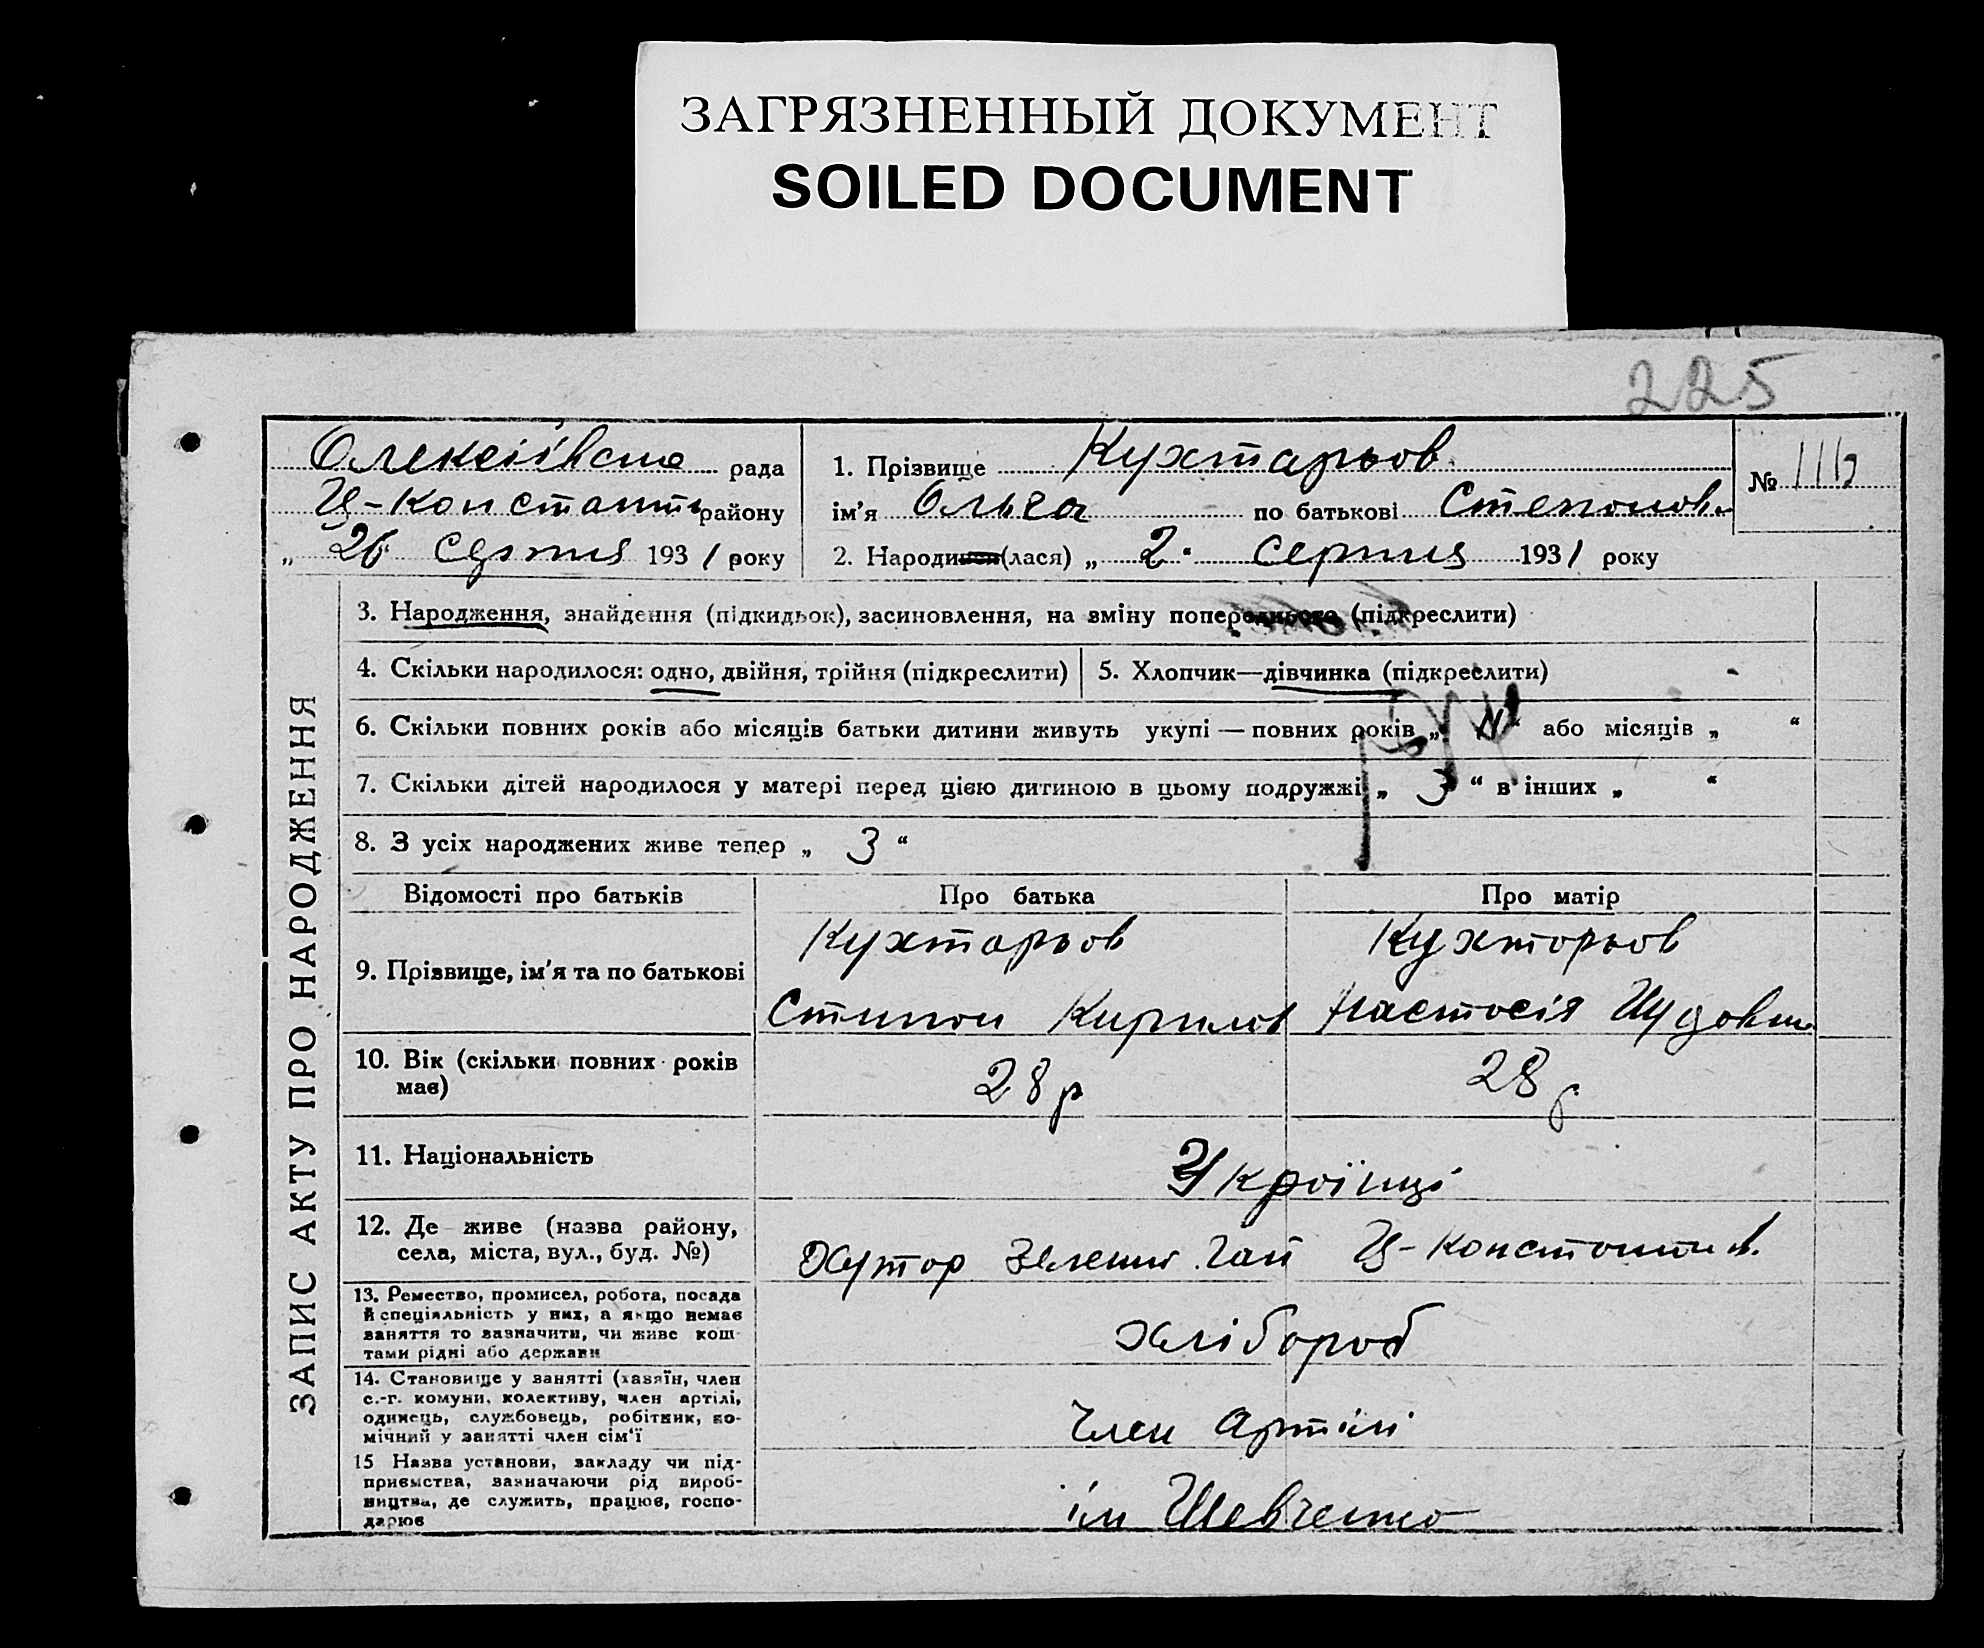 ЗАГРЯЗНЕННЫЙ ДОКУМЕНТ
SOILED DOCUMENT
225
Олексіївська рада
Ц-Констант району
„ 26 серпня 1931 року
1. Прізвище Кухтарьов
ім'я Ольга по батькові Степонов.
2. Народився(лася) „ 2. серпня 1931 року
№
ЗАПИС АКТУ ПРО НАРОДЖЕННЯ
3. Народження, знайдення (підкидьок), засиновлення, на зміну попереднього (підкреслити)
4. Скільки народилося: одно, двійня, трійня (підкреслити)
5. Хлопчик—дівчинка (підкреслити)
6. Скільки повних років або місяців батьки дитини живуть укупі — повних років „ “ або місяців „ “
7. Скільки дітей народилося у матері перед цією дитиною в цьому подружжі „ 3 “ в інших „ “
8. З усіх народжених живе тепер „ 3 “
Відомості про батьків Про батька Про матір
9. Прізвище, ім'я та по батькові
Кухтарьов
Степон Кирилов
Кухторьов
Настосія
10. Вік (скільки повних років
має)
28 р
28 р
11. Національність
Украïнці
12. Де живе (назва району,
села, міста, вул., буд. №)
Хутор Зелений Гай Ц-Константинів.
13. Ремество, промисел, робота, посада
й спеціяльність у них, а якщо немає
заняття то зазначити, чи живе кош-
тами рідні або держави
хлібороб
14. Становище у занятті (хазяїн, член
с.-г. комуни, колективу, член артілі,
одинець, службовець, робітник, по-
мічний у занятті член сім'ї
Член Артілі
15 Назва установи, закладу чи під-
приємства, зазначаючи рід вироб-
ництва, де служить, працює, госпо-
дарює
ім Шевченко